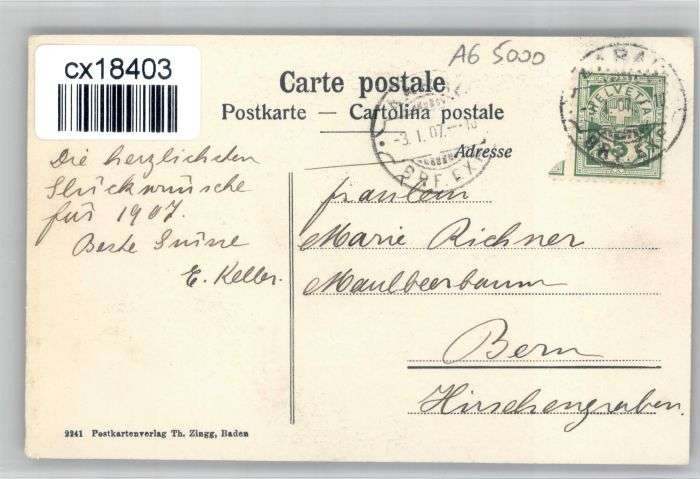 cx18403
AG 5000
Carte postale
Postkarte — Cartolina postale
Adresse
AARAU
HELVETIA
5
BRF. EXP.
-3. I. 07. -10
BRF. EXP.
Die herzlichsten
Glückwünsche
für 1907.
Beste Grüsse
E. Keller.
Fräulein
Marie Richner
Maulbeerbaum
Bern
Hirschengraben.
2241 Postkartenverlag Th. Zingg, Baden